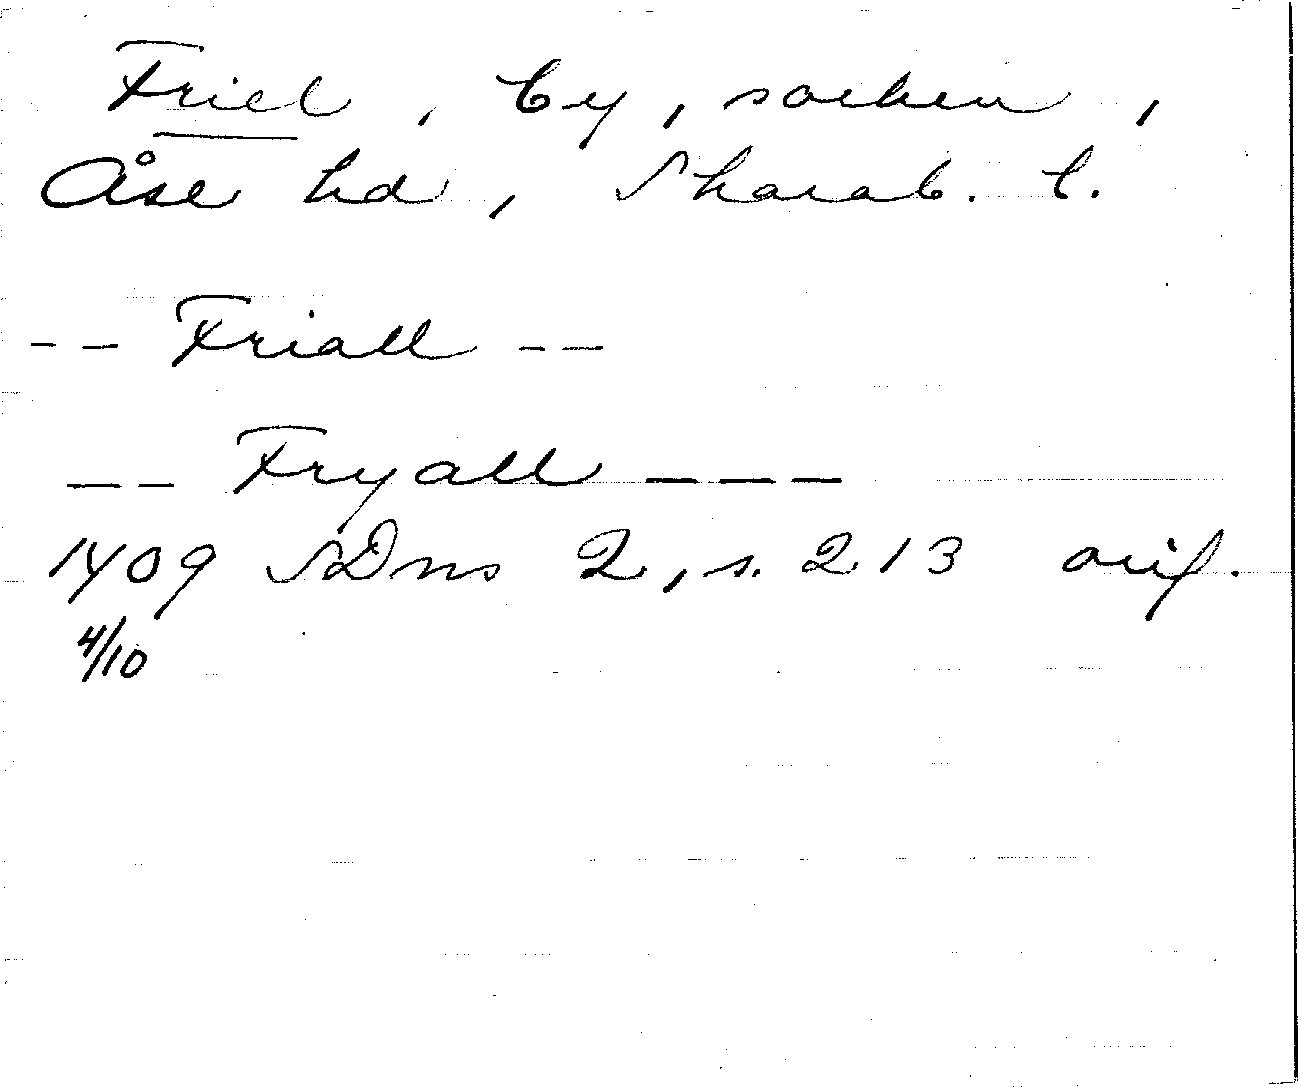 Friel, by, socken,
Åse hd, Skarab. l.
-- Friall --
-- Fryall ---
1409 SDns 2, s. 213 orig.
4/10